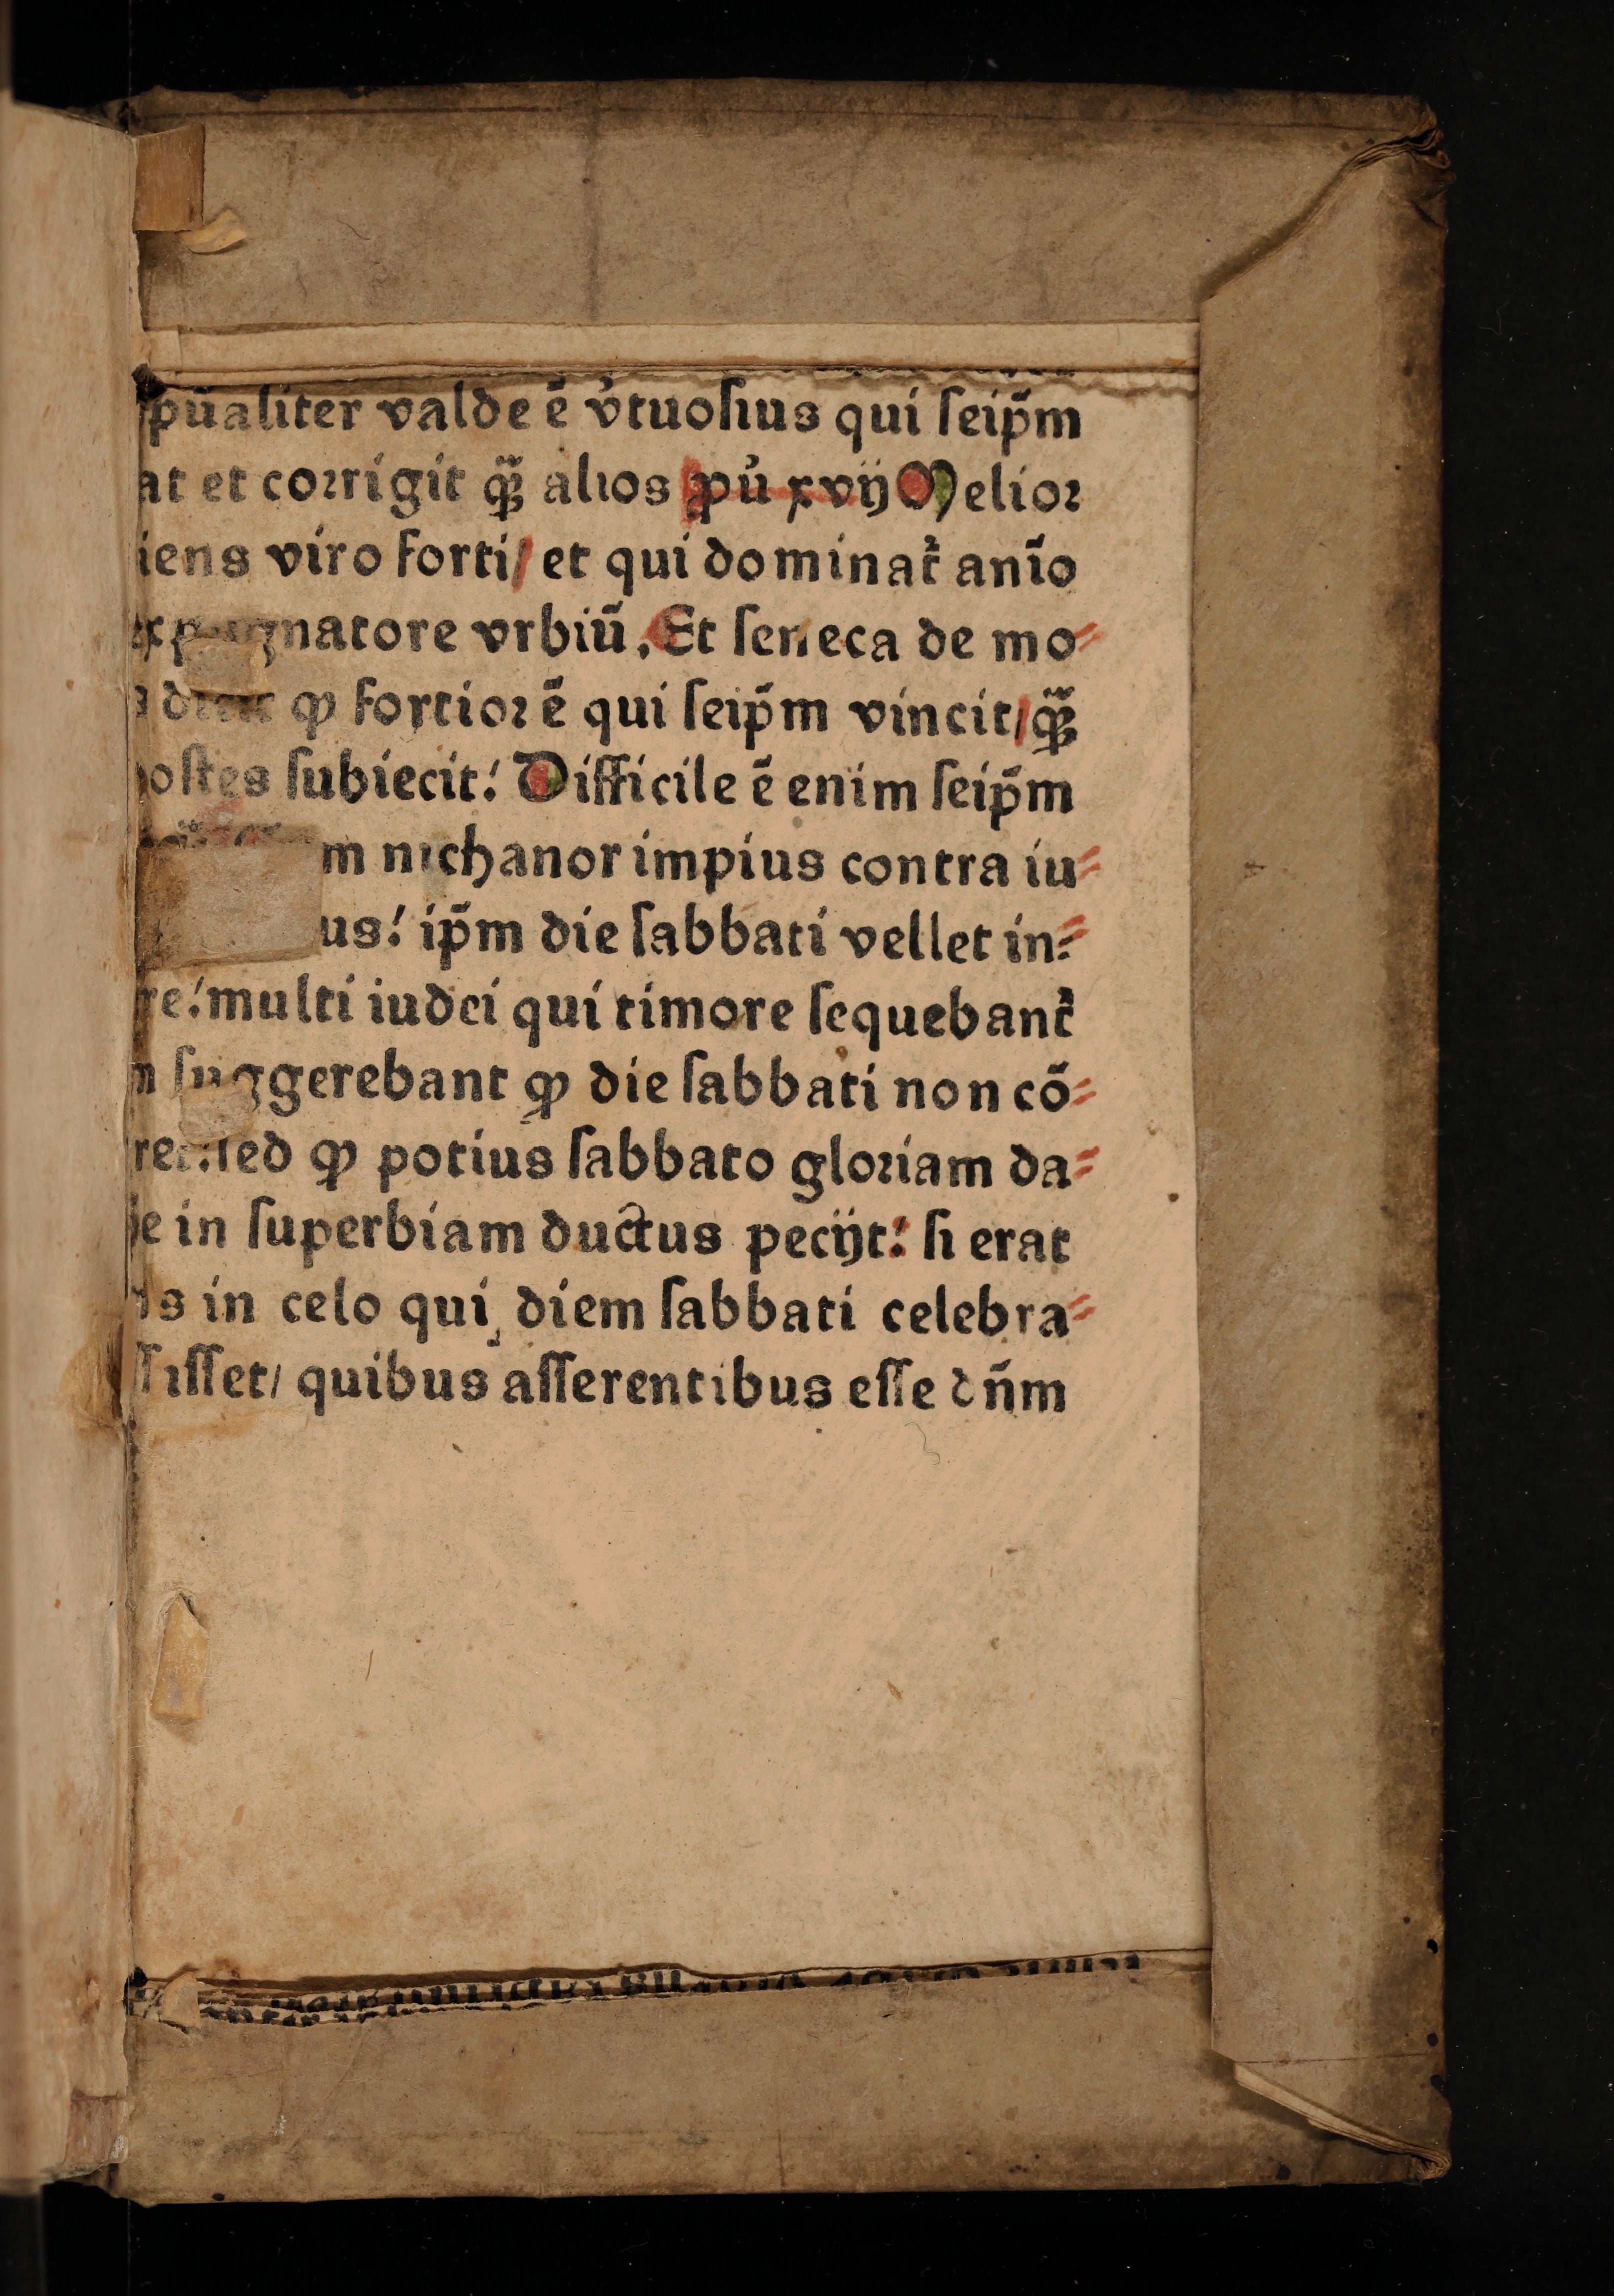 spūaliter valde ē v̓tuoſius qui ſeip̄m
at et corrigit q̄ꝫ alios ꝓu̓ xvij Melior
iens viro forti/ et qui dominat᷑ anīo
natore vrbiū. Et ſeneca de mo⸗
ꝙ fortior ē qui ſeip̄m vincit/ q̄ꝫ
oſtes ſubiecit! Difficile ē enim ſeip̄m
m nichanor impius contra iu⸗
us! ip̄m die ſabbati vellet in⸗
re! multi iudei qui timore ſequebant᷑
m ſuggerebant ꝙ die ſabbati non cō⸗
ret: ſed ꝙ potius ſabbato gloriam da⸗
ie in ſuperbiam ductus pecijt! ſi erat
s in celo qui diem ſabbati celebra⸗
ſſiſſet/ quibus aſſerentibus eſſe dn̄m